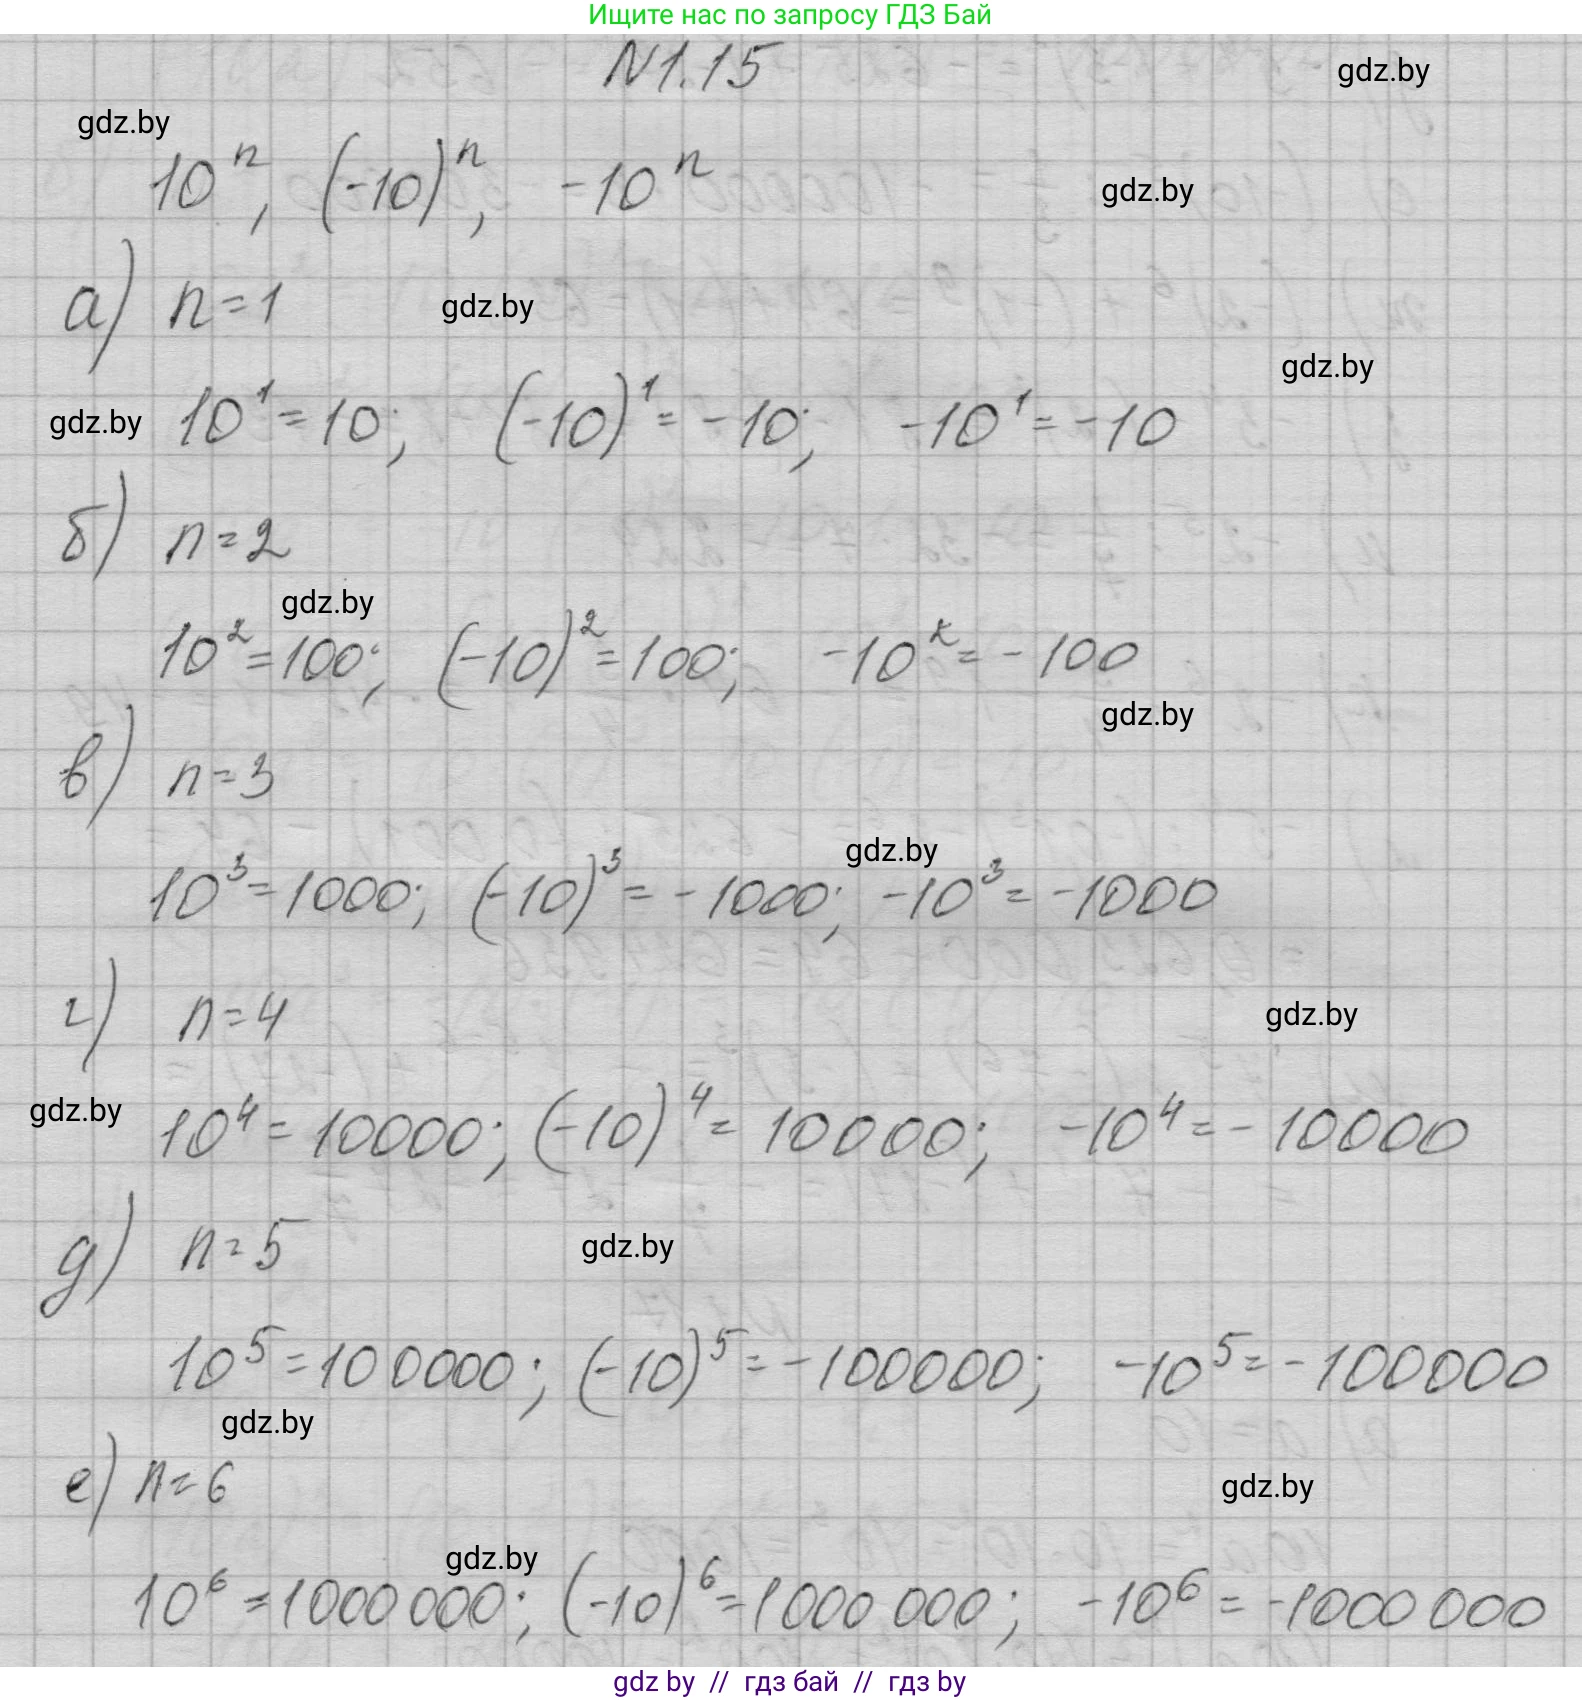 Ищите нас по запросу ГДЗ Бай
N1.15
gdz.by
gdz.by
10ⁿ, (-10)ⁿ, -10ⁿ
gdz.by
а) n=1
gdz.by
gdz.by
gdz.by
10¹=10; (-10)¹=-10; -10¹=-10
б) n=2
gdz.by
10²=100; (-10)²=100; -10²=-100
gdz.by
в) n=3
gdz.by
10³=1000; (-10)³=-1000; -10³=-1000
г) n=4
gdz.by
gdz.by
10⁴=10000; (-10)⁴=10000; -10⁴=-10000
д) n=5
gdz.by
10⁵=100000; (-10)⁵=-100000; -10⁵=-100000
gdz.by
е) n=6
gdz.by
gdz.by
10⁶=1000 000; (-10)⁶=1000 000; -10⁶=-1000 000
gdz by // гдз бай // гдз by